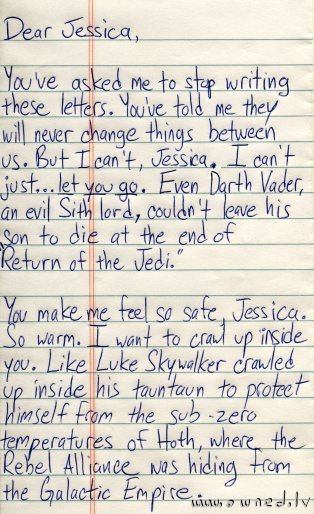 Dear Jessica,
You've asked me to stop writing
these letters. You've told me they
will never change things between
us. But I can't, Jessica. I can't
just...let you go. Even Darth Vader,
an evil Sith lord, couldn't leave his
son to die at the end of
"Return of the Jedi."
You make me feel so safe, Jessica.
So warm. I want to crawl up inside
you. Like Luke Skywalker crawled
up inside his tauntaun to protect
himself from the sub-zero
temperatures of Hoth, where the
Rebel Alliance was hiding from
the Galactic Empire.
www.owned.lv